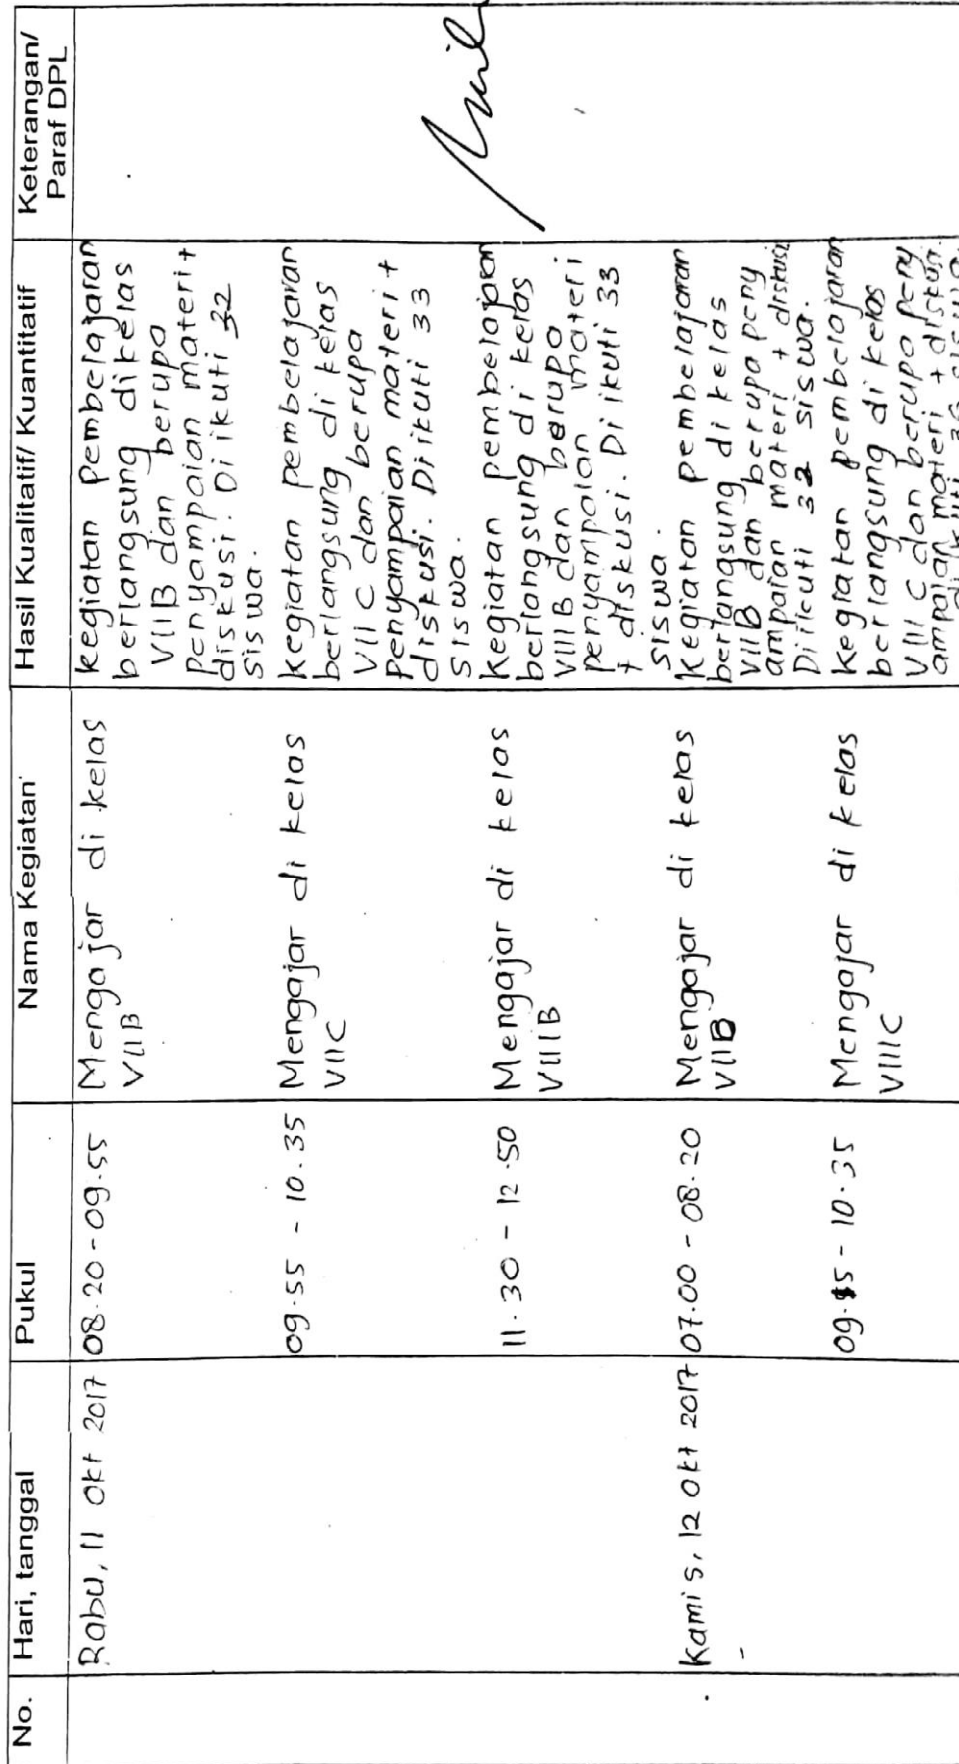 No. Hari, tanggal Pukul Nama Kegiatan Hasil Kualitatif/ Kuantitatif Keterangan/
Paraf DPL
Rabu, 11 Okt 2017 08.20 - 09.55 Mengajar di kelas kegiatan pembelajaran
VIIB berlangsung di kelas
VIIB dan berupa
penyampaian materi +
diskusi. Di ikuti 32
siswa.
09.55 - 10.35 Mengajar di kelas kegiatan pembelajaran
VIIC berlangsung di kelas
VII C dan berupa
penyampaian materi +
diskusi. Di ikuti 33
siswa.
11.30 - 12.50 Mengajar di kelas kegiatan pembelajaran
VIIIB berlangsung di kelas
VIIIB dan berupa
penyampaian materi
+ diskusi. Di ikuti 33
siswa.
Kamis, 12 Okt 2017 07.00 - 08.20 Mengajar di kelas kegiatan pembelajaran
VIIB berlangsung di kelas
VIIB dan berupa peny
ampaian materi + diskusi
Diikuti 32 siswa.
- 10.35 Mengajar di kelas kegiatan pembelajaran
VIIIC berlangsung di kelas
VIII C dan berupa peny
ampaian materi + diskusi.